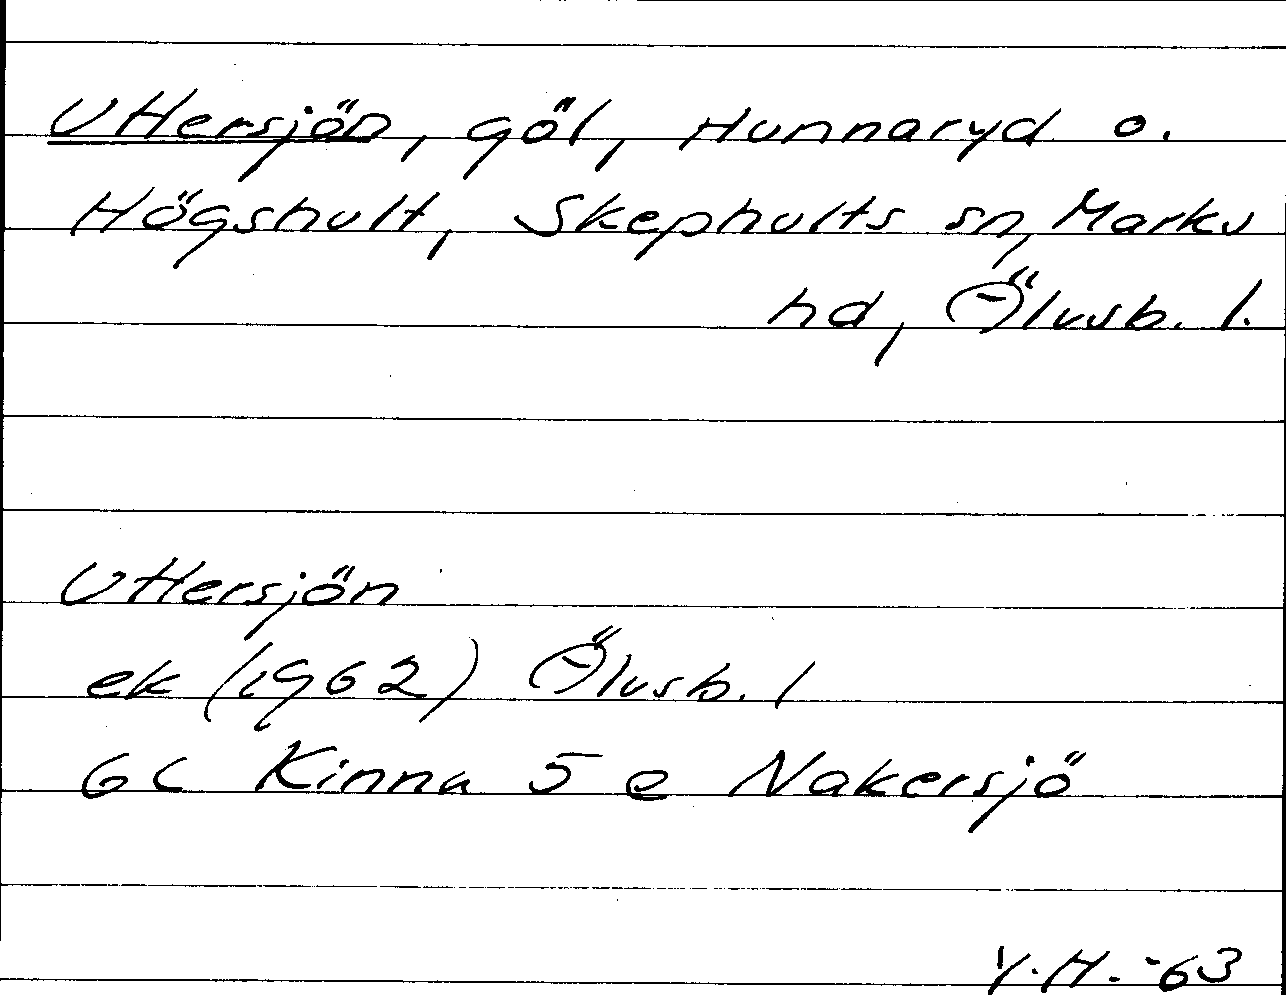 Uttersjön, göl, Hunnaryd o.
Högshult, Skephults sn, Marks
hd, Älvsb. l.
Uttersjön
ek (1962) Älvsb. l
6C Kinna 5 e Nakersjö
Y.H. -63